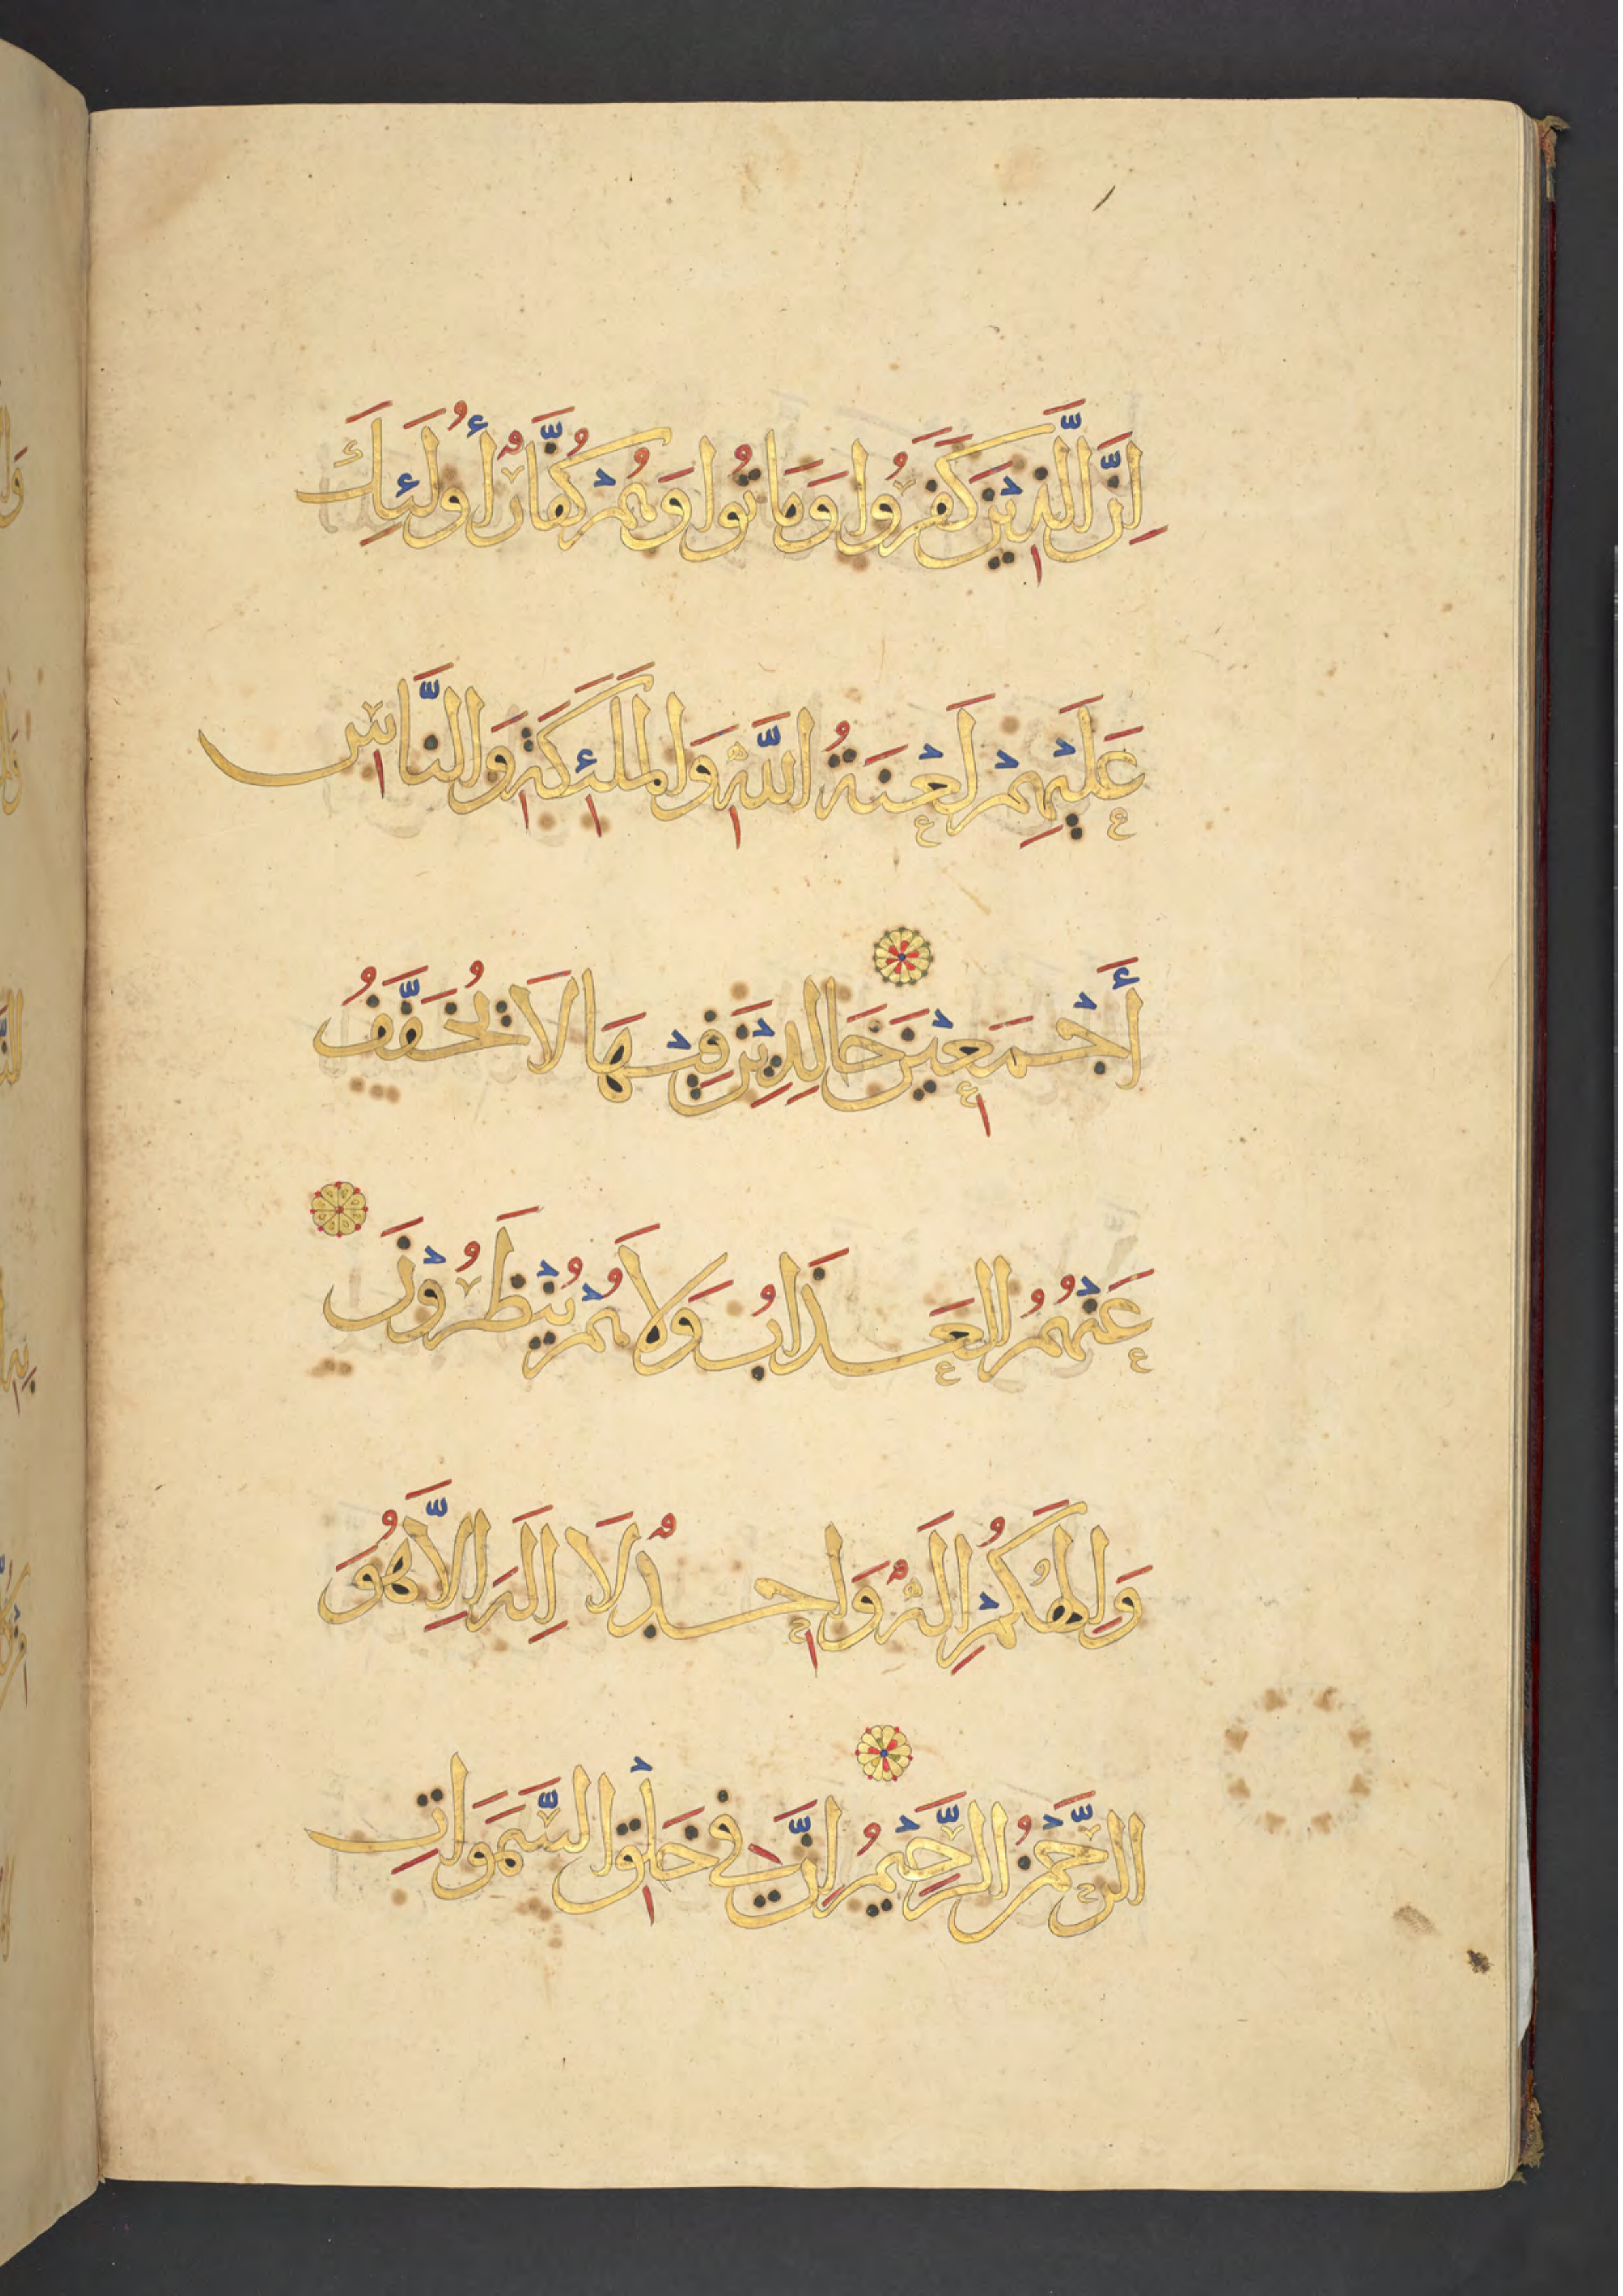 اِنَّ الَّذِيْنَ كَفَرُوا وَمَاتُوا وَهُمْ كُفَّارٌ أُولَئِكَ
عَلَيْهِمْ لَعْنَةُ اللَّهِ وَالمَلَئِكَةِ وَالنَّاسِ
أَجْمَعِيْنَ خَالِدِيْنَ فِيْهَا لَا يُخَفَّفُ
عَنْهُمُ العَذَابُ وَلَا هُمْ يُنْظَرُوْنَ
وَاِلَهُكُمْ اِلَهٌ وَاحِدٌ لَا اِلَهَ اِلَّا هُوَ
الرَّحْمَنُ الرَّحِيْمُ اِنَّ فِي خَلْقِ السَّمَوَاتِ